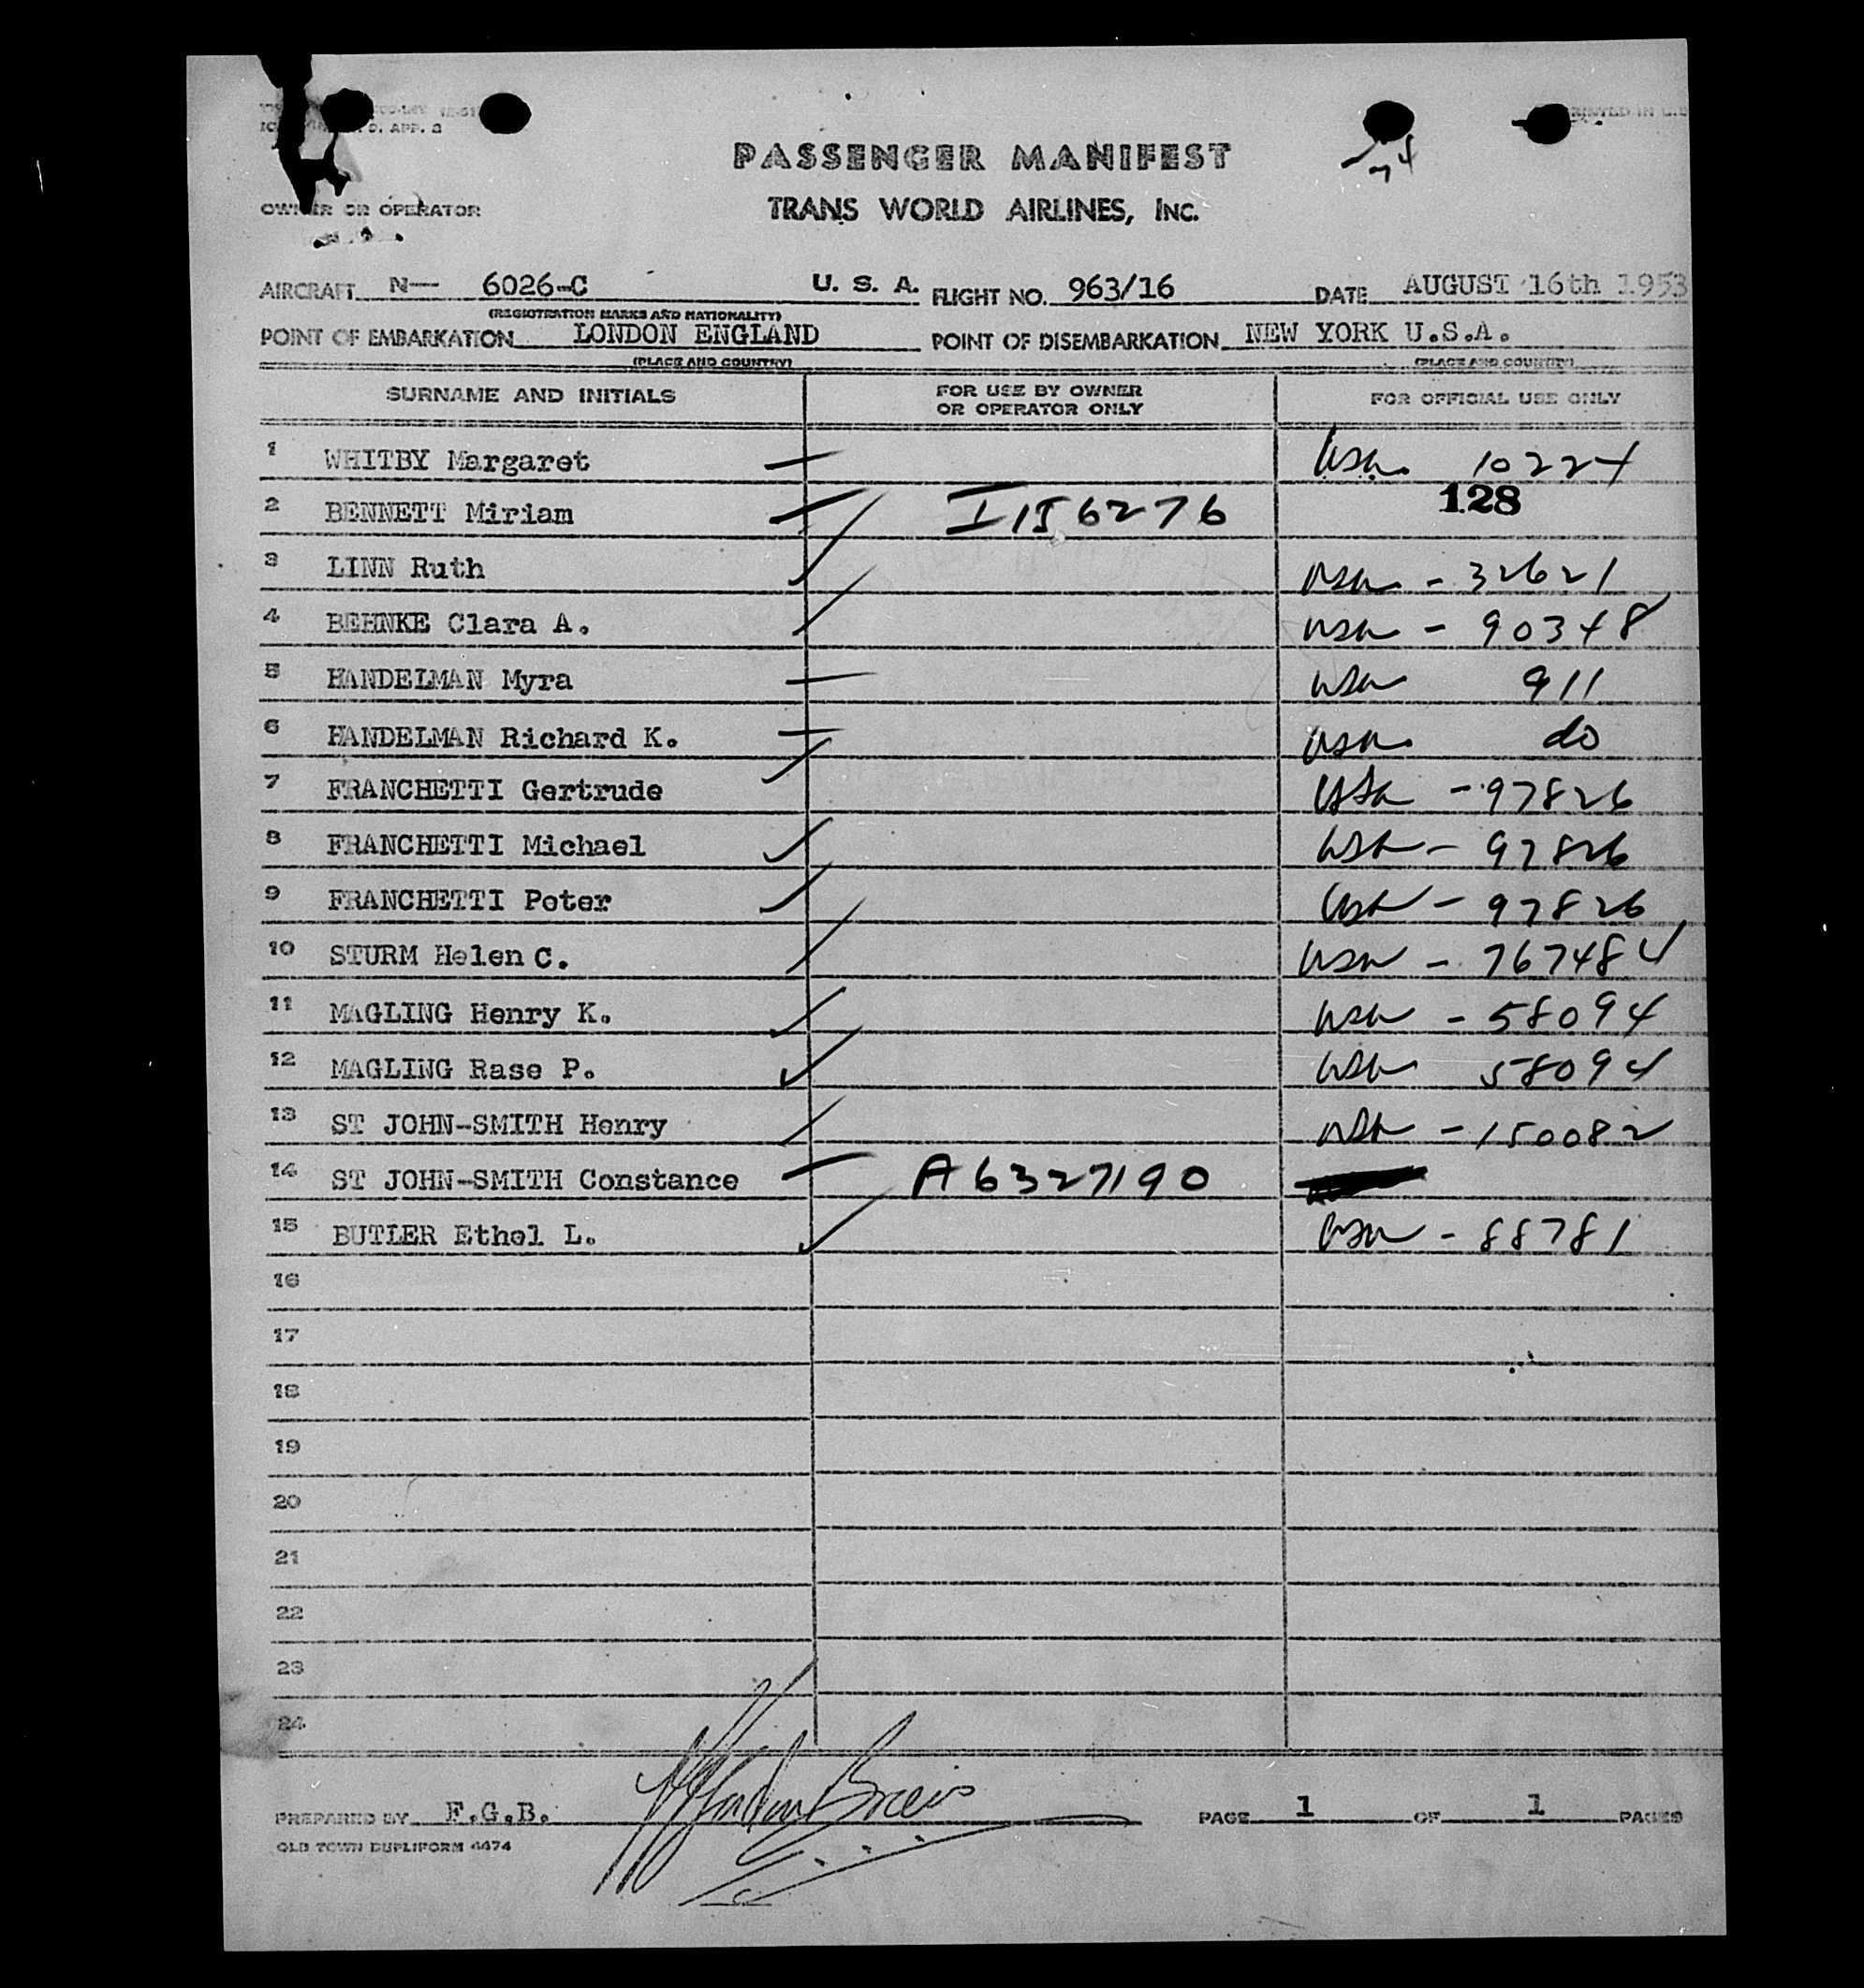 D. APP. 2
PASSENGER MANIFEST
TRANS WORLD AIRLINES, INC.
OWNER OR OPERATOR
AIRCRAFT N— 6026-C U. S. A. FLIGHT NO. 963/16 DATE AUGUST 16th 1953
(REGISTRATION MARKS AND NATIONALITY)
POINT OF EMBARKATION LONDON ENGLAND POINT OF DISEMBARKATION NEW YORK U.S.A.
(PLACE AND COUNTRY) (PLACE AND COUNTRY)
SURNAME AND INITIALS FOR USE BY OWNER OR OPERATOR ONLY FOR OFFICIAL USE ONLY
1 WHITBY Margaret usa. 10224
2 BENNETT Miriam I 156276 128
3 LINN Ruth usa - 32621
4 BEHNKE Clara A. usa - 90348
5 HANDELMAN Myra usa 911
6 HANDELMAN Richard K. usa. do
7 FRANCHETTI Gertrude USA - 97826
8 FRANCHETTI Michael usa - 97826
9 FRANCHETTI Peter usa - 97826
10 STURM Helen C. usa - 767484
11 MAGLING Henry K. usa - 58094
12 MAGLING Rase P. usa 58094
13 ST JOHN-SMITH Henry usa - 150082
14 ST JOHN-SMITH Constance A6327190
15 BUTLER Ethel L. usa - 88781
16
17
18
19
20
21
22
23
24
PREPARED BY F.G.B. PAGE 1 OF 1 PAGES
OLD TOWN DUPLIFORM 4474